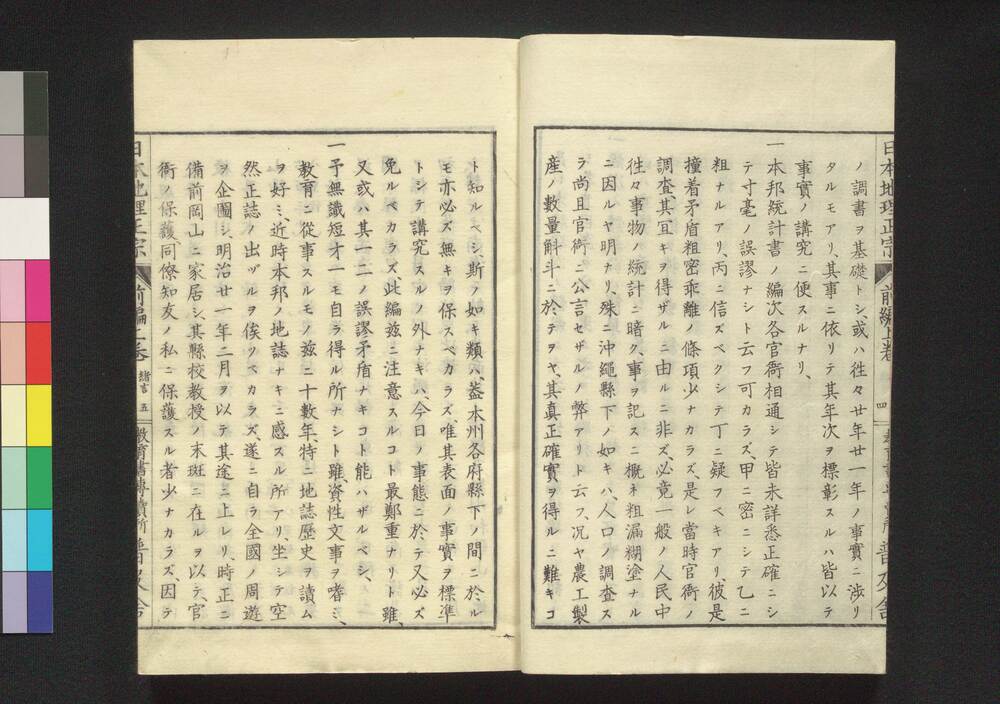 日本地理正宗 前編上卷 四 普及舍
ノ調書ヲ基礎トシ、或ハ往々廿年廿一年ノ事實ニ涉リ
タルモアリ、其事ニ依リテ其年次ヲ標彰スルハ皆以テ
事實ノ講究ニ便スルナリ、
一本邦統計書ノ編次各官衙相通シテ皆未詳悉正確ニシ
テ寸毫ノ誤謬ナシト云フ可カラズ、甲ニ密ニシテ乙ニ
粗ナルアリ、丙ニ信ズベクシテ丁ニ疑フベキアリ、彼是
撞着矛盾粗密乖離ノ條項少ナカラズ、是レ當時官衙ノ
調査、其宜キヲ得ザルニ由ルニ非ズ、必竟一般ノ人民中
往々事物ノ統計ニ暗ク、事ヲ記スニ概ネ粗漏糊塗ナル
ニ因ルヤ明ナリ、殊ニ沖繩縣下ノ如キハ、人口ノ調査ス
ラ尚且官衙ニ公言セザルノ弊アリト云フ、况ヤ農工製
産ノ數量斛斗ニ於テヲヤ、其眞正確實ヲ得ルニ難キコ
ト知ルベシ、斯ノ如キ類ハ、葢本州各府縣下ノ間ニ於ル
モ亦必ズ無キヲ保スベカラズ、唯其表面ノ事實ヲ標準
トシテ講究スルノ外ナキハ、今日ノ事態ニ於テ又必ズ
免ルベカラズ、此編茲ニ注意スルコト最鄭重ナリト雖、
又或ハ其一二ノ誤謬矛盾ナキコト能ハザルベシ、
一予無識短才一モ自ラ得ル所ナシト雖、資性文事ヲ嗜ミ、
敎育ニ從事スルモノ茲ニ十數年、特ニ地誌歷史ヲ讀ム
ヲ好ミ、近時本邦ノ地誌ナキニ感スル所アリ、坐シテ空
然正誌ノ出ヅルヲ俟ツベカラズ、遂ニ自ラ全國ノ周遊
ヲ企圖シ、明治廿一年二月ヲ以テ其途ニ上レリ、時正ニ
備前岡山ニ家居シ、其縣校敎授ノ末班ニ在ルヲ以テ、官
衙ノ保護、同僚知友ノ私ニ保護スル者少ナカラズ、因テ
日本地理正宗 前編上卷 緖言 五 敎育書專賣所 普及舍